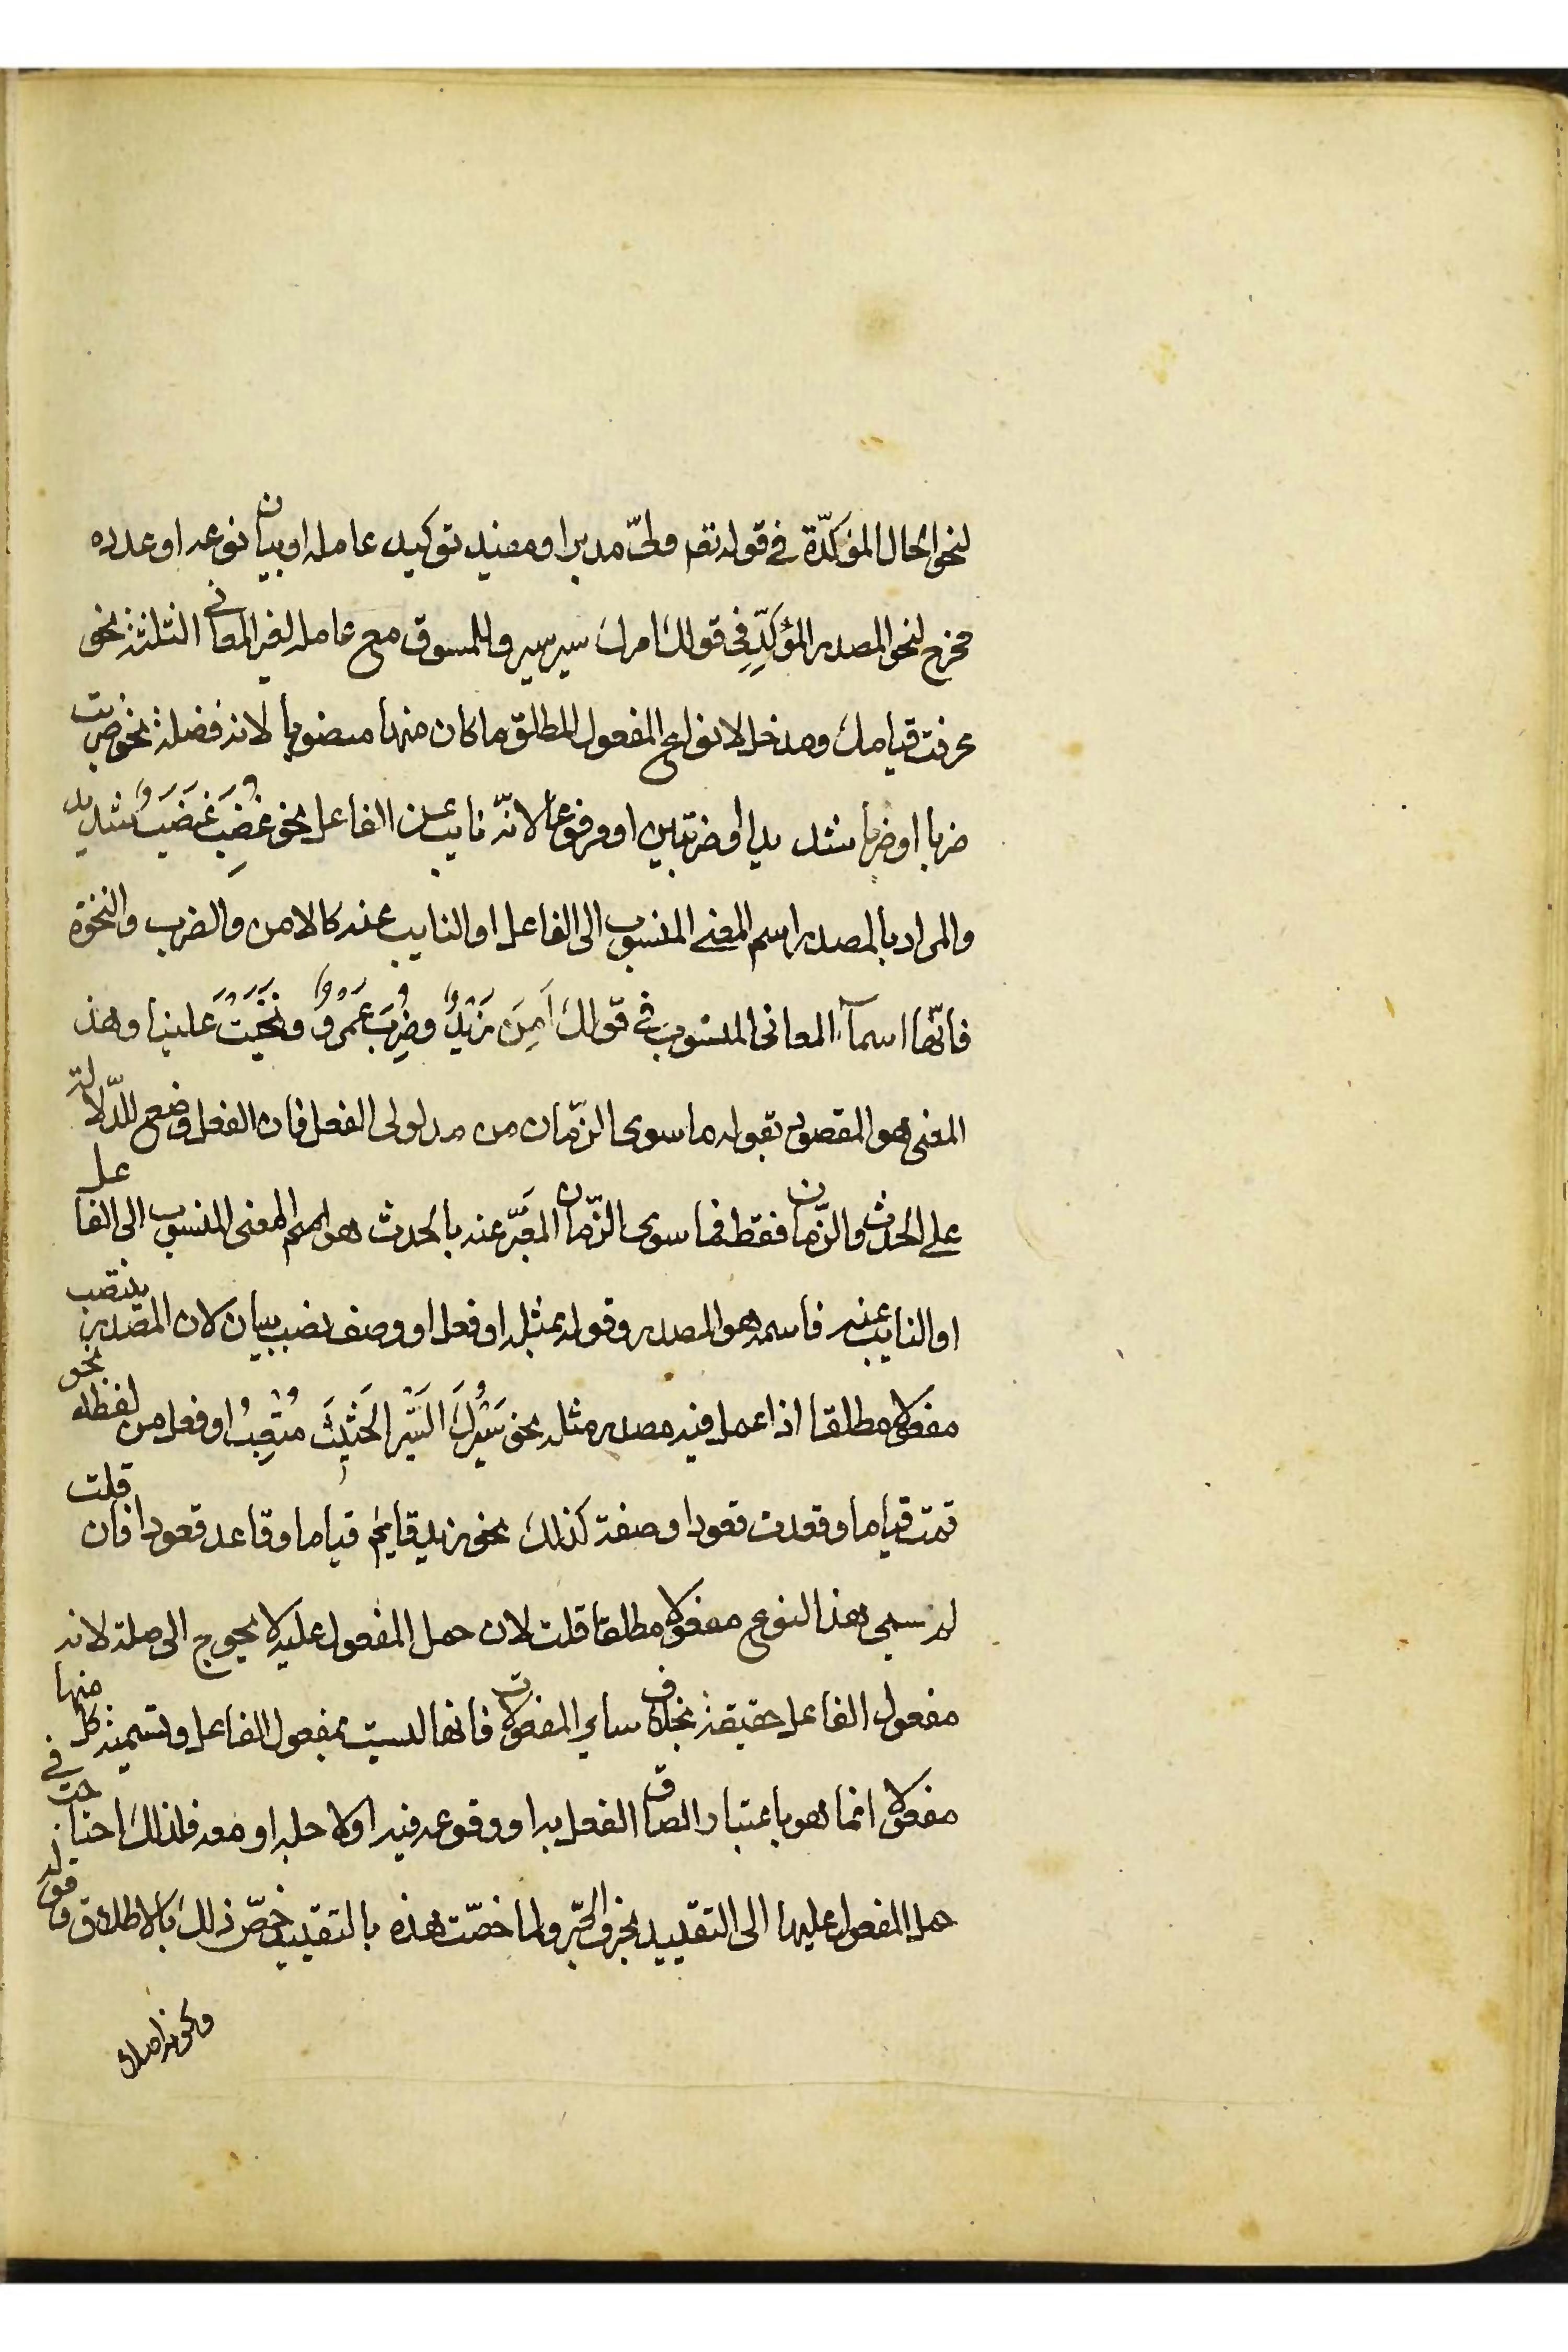 لنحو الحال المؤكدّة في قوله تعم ولىّ مدبرا ومفيد توكيد عامله او بيان نوعه او عدده
مخرج لنحو المصدر المؤكِّدِ في قولك امرك سير سير وللمسوق مع عامله لغير المعاني الثلثة نحو
عرفت قيامك ومدخل لانواع المفعول المطلق ما كان منها منصوبا لانه فضلة نحو ضربت
ضربا او ضربا شديدا او ضربتين او مرفوعا لانّه نايب عن الفاعل نحو غُضِبَ غَضَبٌ شديد
والمراد بالمصدر اسم المعنى المنسوب الى الفاعل او النايب عنه كالامن والضرب والنخوة
فانّها اسمآء المعاني المنسوبة في قولك اَمِنَ زَيْدٌ وضُرِبَ عَمْرٌو ونُخِيَتْ علينا وهذا
المعنى هو المقصود بقوله ما سوى الزّمان من مدلولي الفعل فان الفعل وضع للدّلالة
على الحدث والزّمان فقط فما سوى الزّمان المعَبّر عنه بالحدث هو اسم المعنى المنسوب الى الفاعل
او النايب عنه فاسمه هو المصدر وقوله بمثله او فعل او وصف نصب بيان لان المصدر ينتصب
مفعولا مطلقا اذا عمل فيه مصدر مثله نحو سَيْرُكَ السَّيْرَ الحَثِيثَ مُتْعِبٌ او فعل من لفظه نحو
قمت قياما وقعدت قعودا وصفة كذلك نحو زيد قايم قياما وقاعد قعودا فان قلت
لم سمي هذا النوع مفعولا مطلقا قلت لان حمل المفعول عليه لا يحوج الى صلة لانه
مفعول الفاعل حقيقة بخلاف ساير المفعولات فانها ليست بمفعول الفاعل وتسمية كل منها
مفعولا انما هو باعتبار الصاق الفعل به او وقوعه فيه او لاجله او معه فلذلك احتاجت في
حمل المفعول عليها الى التقييد بحرف الجرّ ولما خصّت هذه بالتقييد خصّ ذلك بالاطلاق وقوله
وكونه اصلا